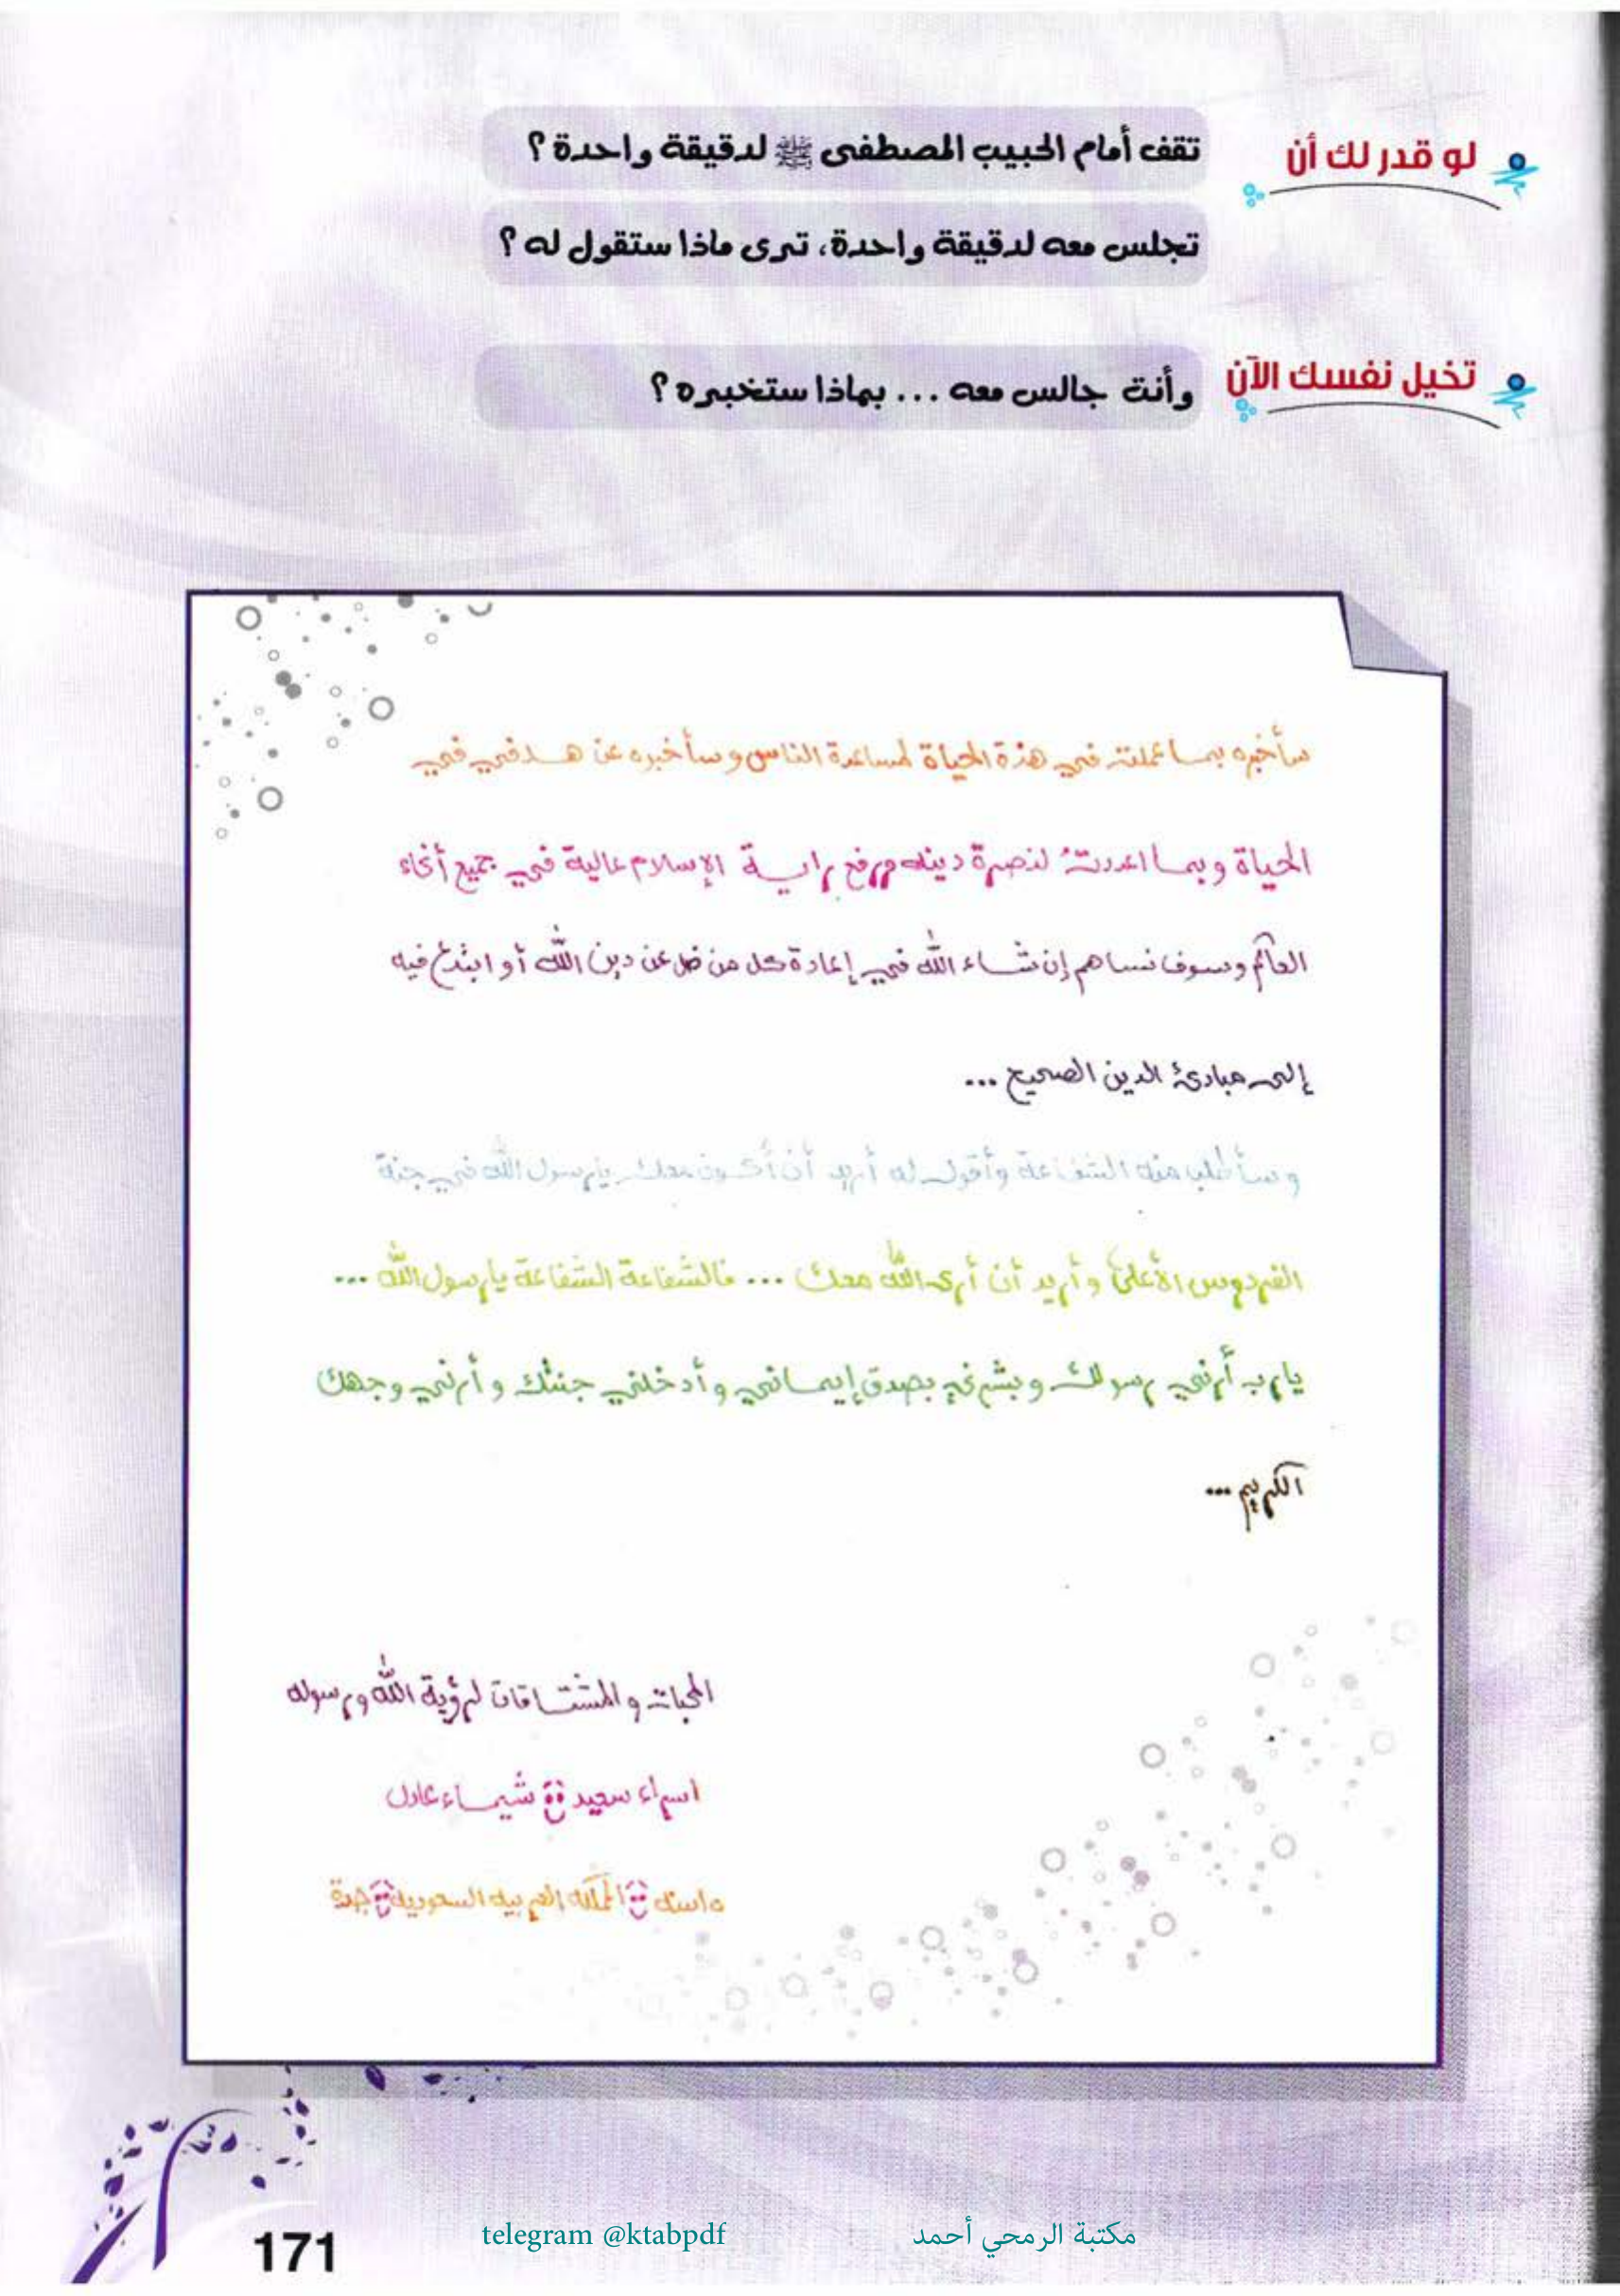 لو قدر لك أن
تقف أمام الحبيب المصطفى ﷺ لدقيقة واحدة؟
تجلس معه لدقيقة واحدة، ترى ماذا ستقول له؟
تخيل نفسك الآن
وأنت جالس معه ... بماذا ستخبره؟
سأخبره بما عملته في هذة الحياة لمساعدة الناس وسأخبره عن هدفي في
الحياة وبما اعددتُ لنصرة دينه ورفع راية الإسلام عالية في جميع أنحاء
العالم وسوف نساهم إن شاء اللّه في إعادة كل من ضل عن دين اللّه أو ابتدع فيه
إلى مبادئ الدين الصحيح ...
وسأطلب منه الشفاعة وأقول له أريد أن أكون معك يارسول اللّه في جنة
الفردوس الأعلى وأريد أن أرى اللّه معك ... فالشفاعة الشفاعة يارسول اللّه ...
يارب أرني رسولك وبشرني بصدق إيماني وأدخلني جنتك وأرني وجهك
الكريم ...
المحبات والمشتاقات لرؤية اللّه ورسوله
اسراء سعيد شيماء عادل
المملكه العربيه السعوديه جدة
171
telegram @ktabpdf
مكتبة الرمحي أحمد